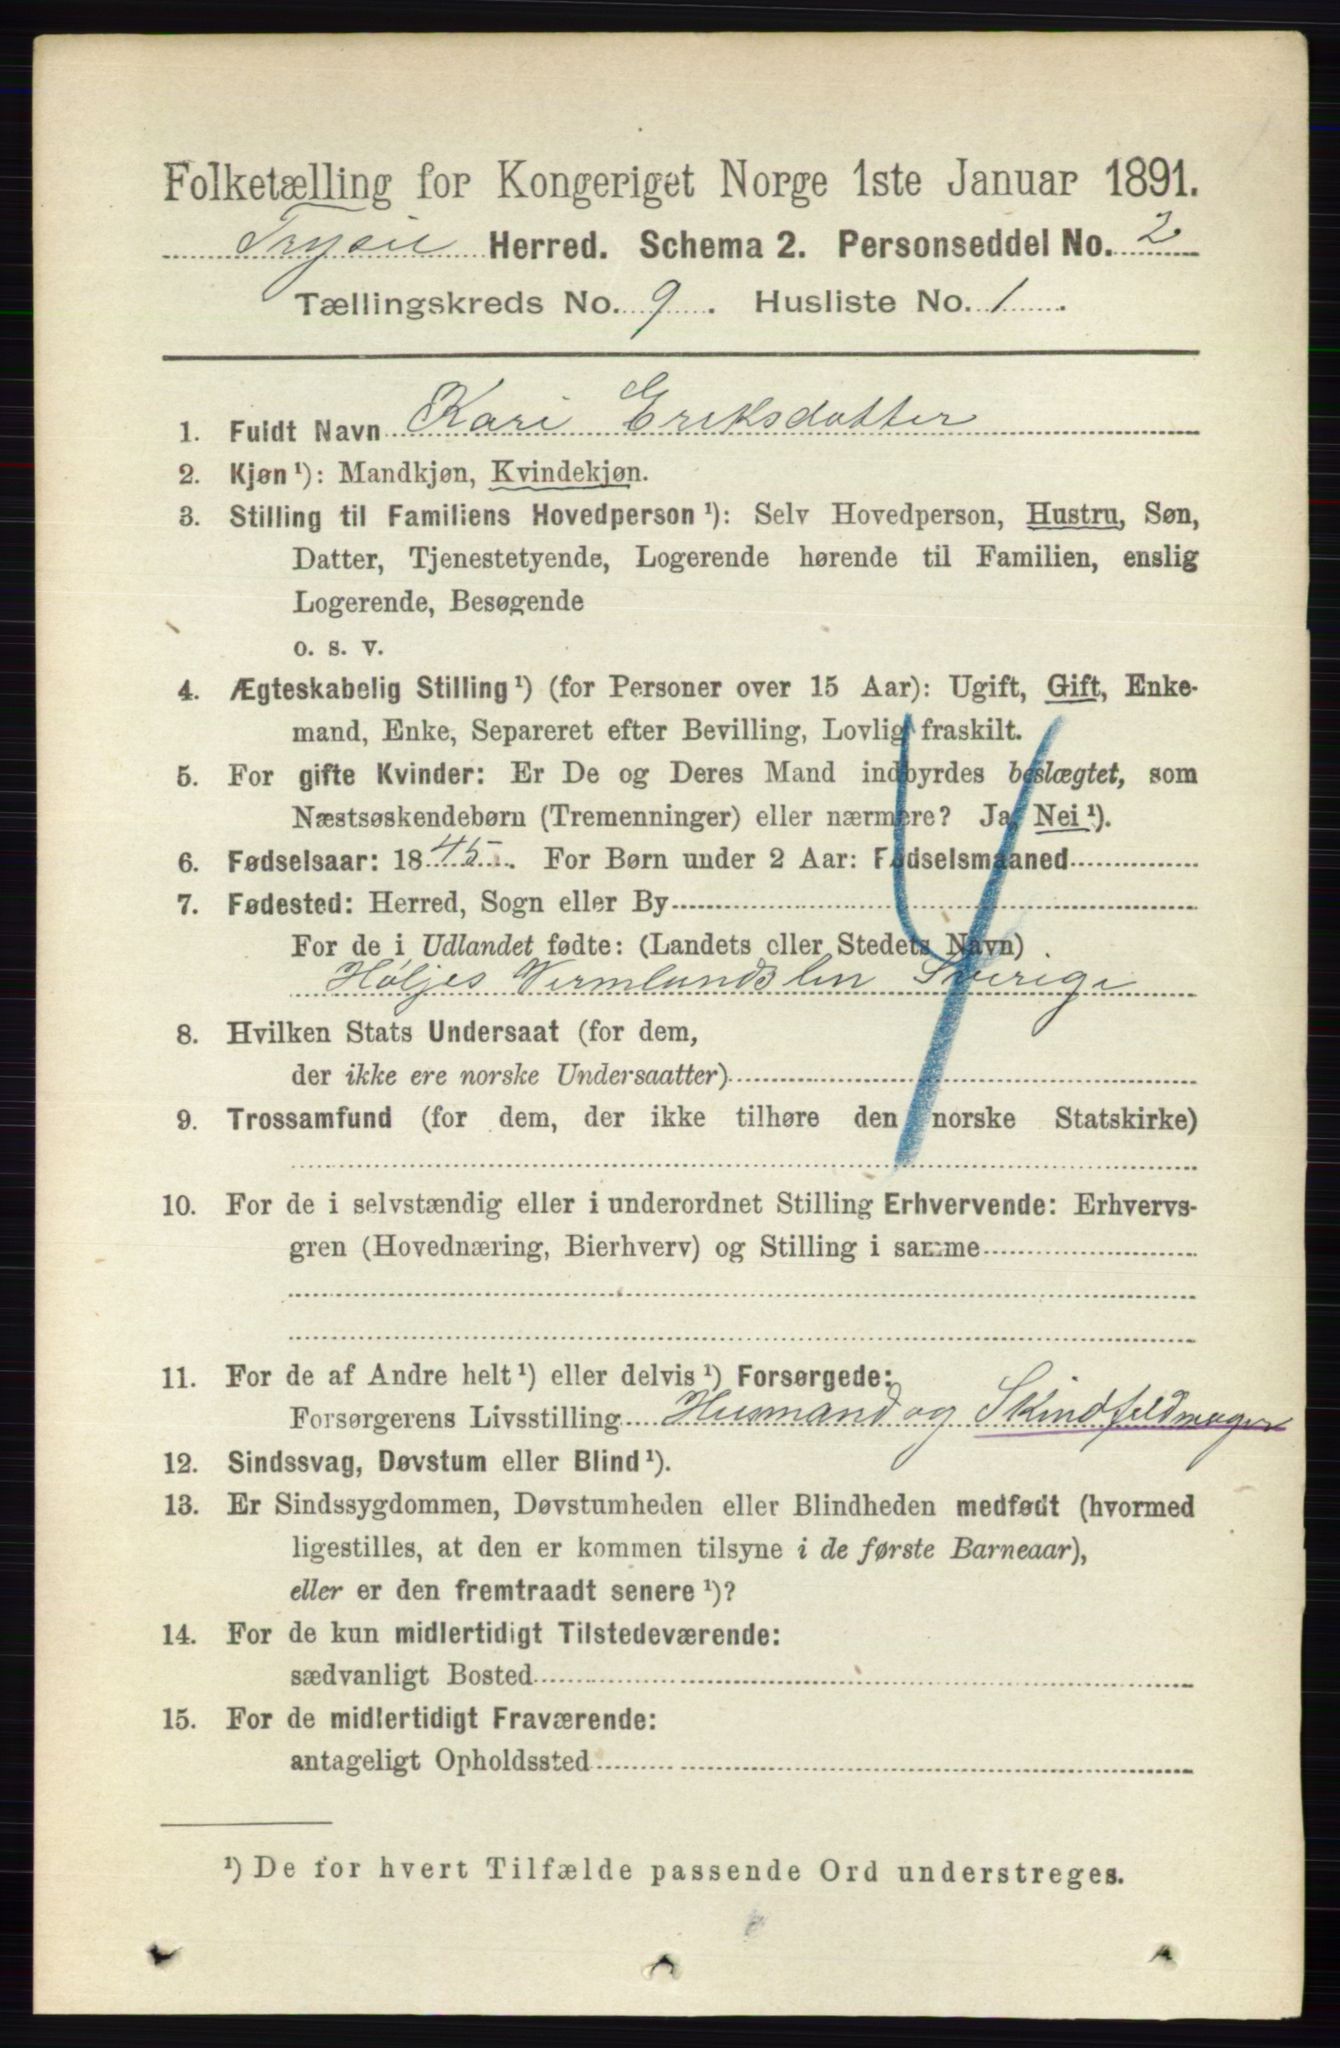 Folketælling for Kongeriget Norge 1ste Januar 1891.
Trysil Herred. Schema 2. Personseddel No. 2
Tællingskreds No. 9. Husliste No. 1.
1. Fuldt Navn Kari Eriksdatter
2. Kjøn¹): Mandkjøn, Kvindekjøn.
3. Stilling til Familiens Hovedperson¹): Selv Hovedperson, Hustru, Søn,
Datter, Tjenestetyende, Logerende hørende til Familien, enslig
Logerende, Besøgende
o. s. v.
4. Ægteskabelig Stilling¹) (for Personer over 15 Aar): Ugift, Gift, Enke-
mand, Enke, Separeret efter Bevilling, Lovlig fraskilt.
5. For gifte Kvinder: Er De og Deres Mand indbyrdes beslægtet, som
Næstsøskendebørn (Tremenninger) eller nærmere? Ja, Nei¹).
6. Fødselsaar: 1845. For Børn under 2 Aar: Fødselsmaaned
7. Fødested: Herred, Sogn eller By
For de i Udlandet fødte: (Landets eller Stedets Navn)
Høljes Vermlandslen Sverige
8. Hvilken Stats Undersaat (for dem,
der ikke ere norske Undersaatter)
9. Trossamfund (for dem, der ikke tilhøre den norske Statskirke)
10. For de i selvstændig eller i underordnet Stilling Erhvervende: Erhvervs-
gren (Hovednæring, Bierhverv) og Stilling i samme
11. For de af Andre helt¹) eller delvis¹) Forsørgede:
Forsørgerens Livsstilling Husmand og Skindfeldmager
12. Sindssvag, Døvstum eller Blind¹).
13. Er Sindssygdommen, Døvstumheden eller Blindheden medfødt (hvormed
ligestilles, at den er kommen tilsyne i de første Barneaar),
eller er den fremtraadt senere¹)?
14. For de kun midlertidigt Tilstedeværende:
sædvanligt Bosted
15. For de midlertidigt Fraværende:
antageligt Opholdssted
¹) De for hvert Tilfælde passende Ord understreges.